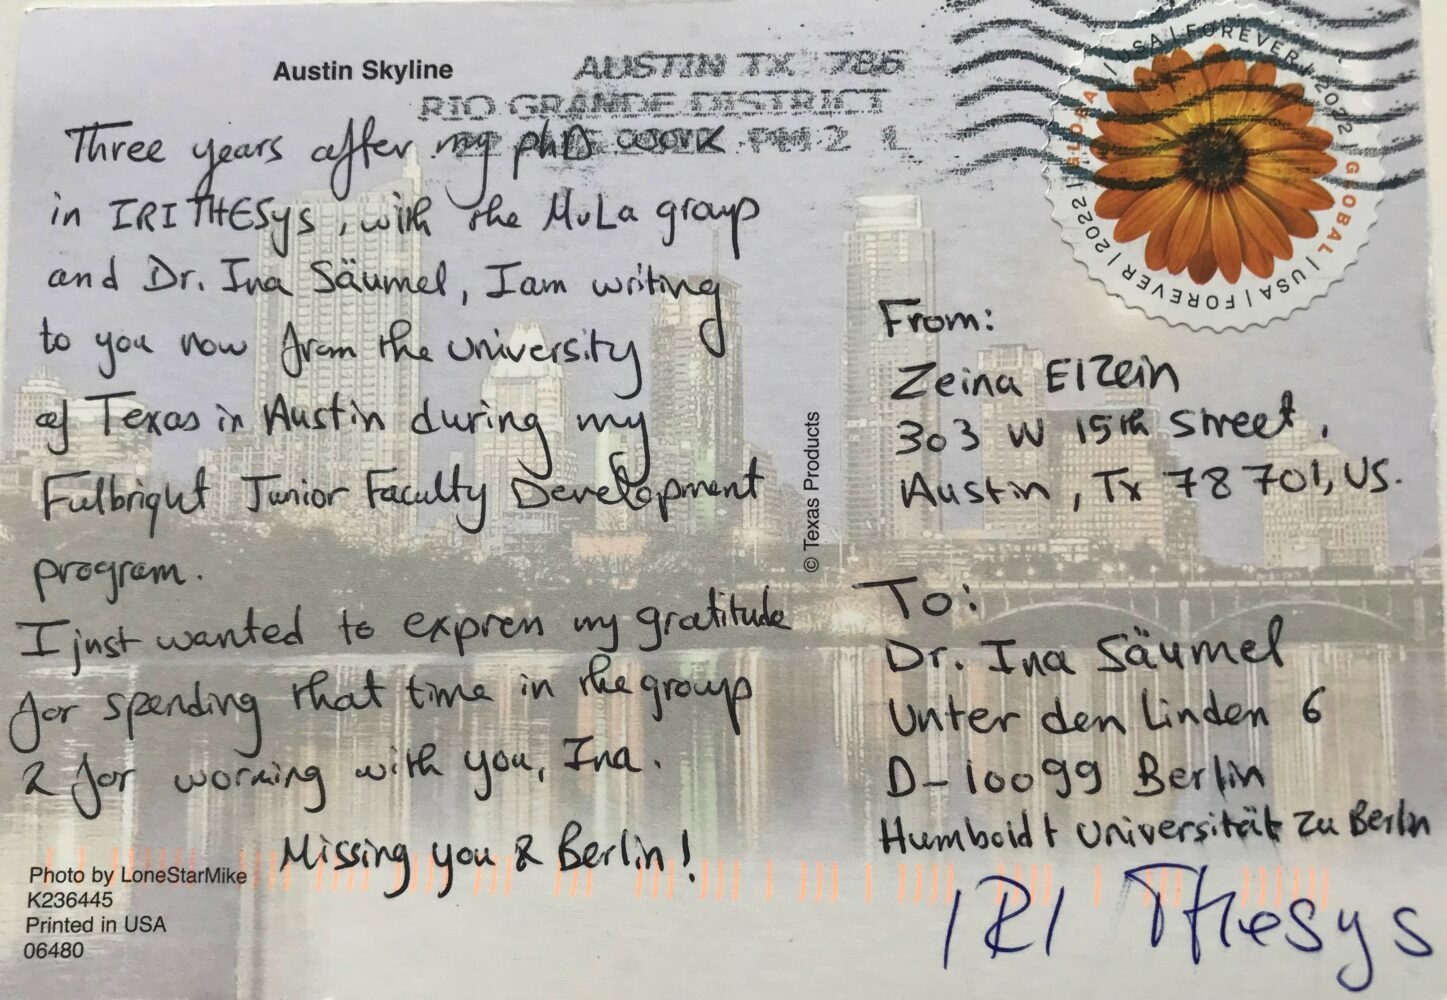 Austin Skyline
AUSTIN TX 786
RIO GRANDE DISTRICT
PM 2 L
GLOBAL | USA | FOREVER | 2022 | GLOBAL | USA | FOREVER | 2022 |
Three years after my phD work
in IRI THESys, with the MuLa group
and Dr. Ina Säumel, I am writing
to you now from the university
of Texas in Austin during my
Fulbright Junior Faculty Development
program.
I just wanted to express my gratitude
for spending that time in the group
& for working with you, Ina.
Missing you & Berlin!
© Texas Products
From:
Zeina ElZein
303 W 15th street,
Austin, Tx 78701, US.
To:
Dr. Ina Säumel
Unter den Linden 6
D-10099 Berlin
Humboldt Universität zu Berlin
IRI THesys
Photo by LoneStarMike
K236445
Printed in USA
06480